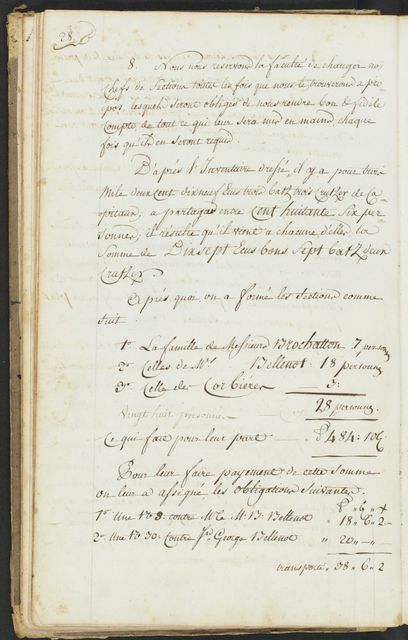 28
8. Nous nous reservons la faculté de changer nos
Chefs de Sections toutes les fois que nous le trouverons a pro
pos, lesquels seront obligés de nous rendre bon & fidele
Compte de tout ce qui leur sera mis en mains chaque
fois qu'ils en seront requis.
D'après l'Inventaire dressé, il y a pour trois
Mile deux cent dix neuf Ecus trois batz trois Crutzer de Ca
pitaux, a partager entre Cent huitante Six per
sonnes; il resulte qu'il vient a chacune d'elles la
Somme de Dix sept Ecus bons Sept batz deux
Crutzer.
Après quoi on a formé les Sections comme
suit
1º La famille de Messieurs Brochatton 7 person
2º Celles de Mr. Bellenot 18 personn
3º Celle des Corbières 3:
28 personn
Vingt huit personnes
Ce qui fait pour leur part 484: 10
Pour leur faire payement de cette somme
on leur a assigné, les obligations suivantes.
1º Une Nº 8: contre Mr le M: B: Bellenot " 18 " 6 " 2
2º Une Nº 30: Contre George Bellenot " 20 " — " —
transporté " 38 " 6 " 2